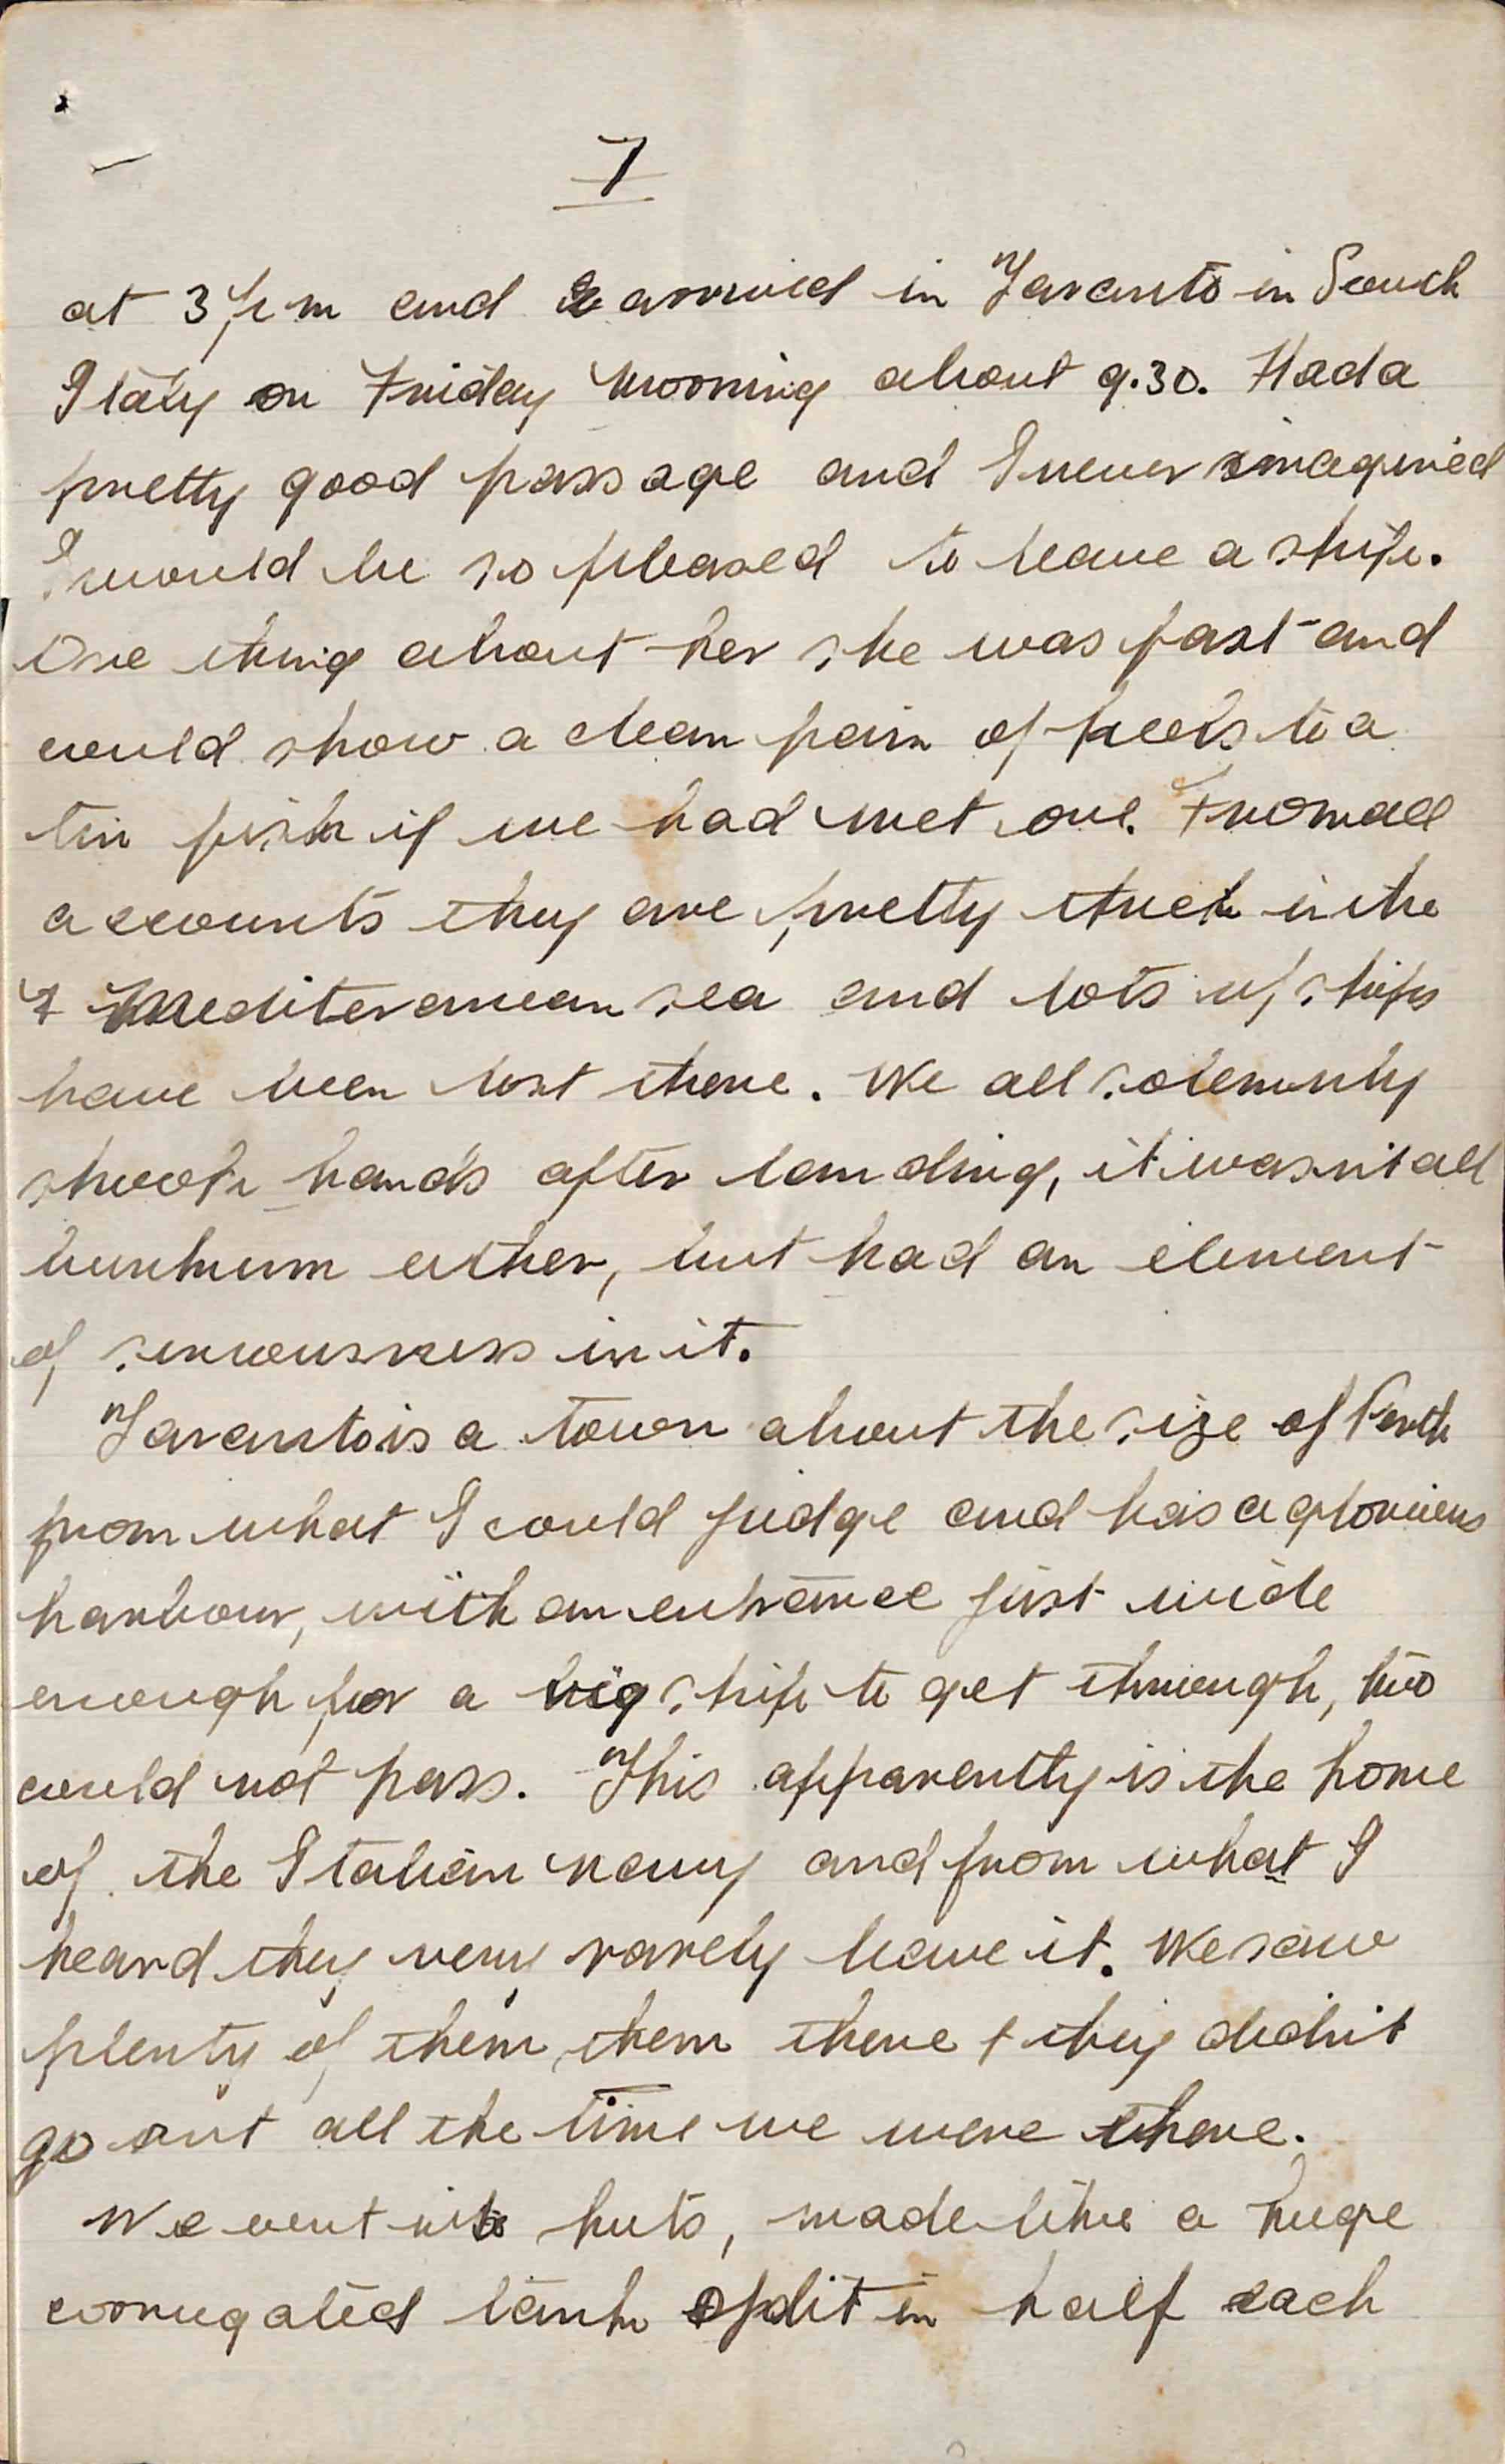 7
at 3 pm and arrived in Taranto in South
Italy on Friday morning about 9.30. Had a
pretty good passage and I never imagined
I would be so pleased to leave a ship.
One thing about her she was fast and
could show a clean pair of heels to a
tin fish if we had met one. From all
accounts they are pretty thick in the
Mediteranean sea and lots of ships
have been lost there. We all solemnly
shook hands after landing, it wasn't all
bunkum either, but had an element
of seriousness in it.
Taranto is a town about the size of Perth
from what I could judge and has a glorious
harbour, with an entrance just wide
enough for a big ship to get through, two
could not pass. This apparently is the home
of the Italian navy and from what I
heard they very rarely leave it. We saw
plenty of them, them there + they didn't
go out all the time we were there.
We went into huts, made like a huge
corrugated tank split in half each